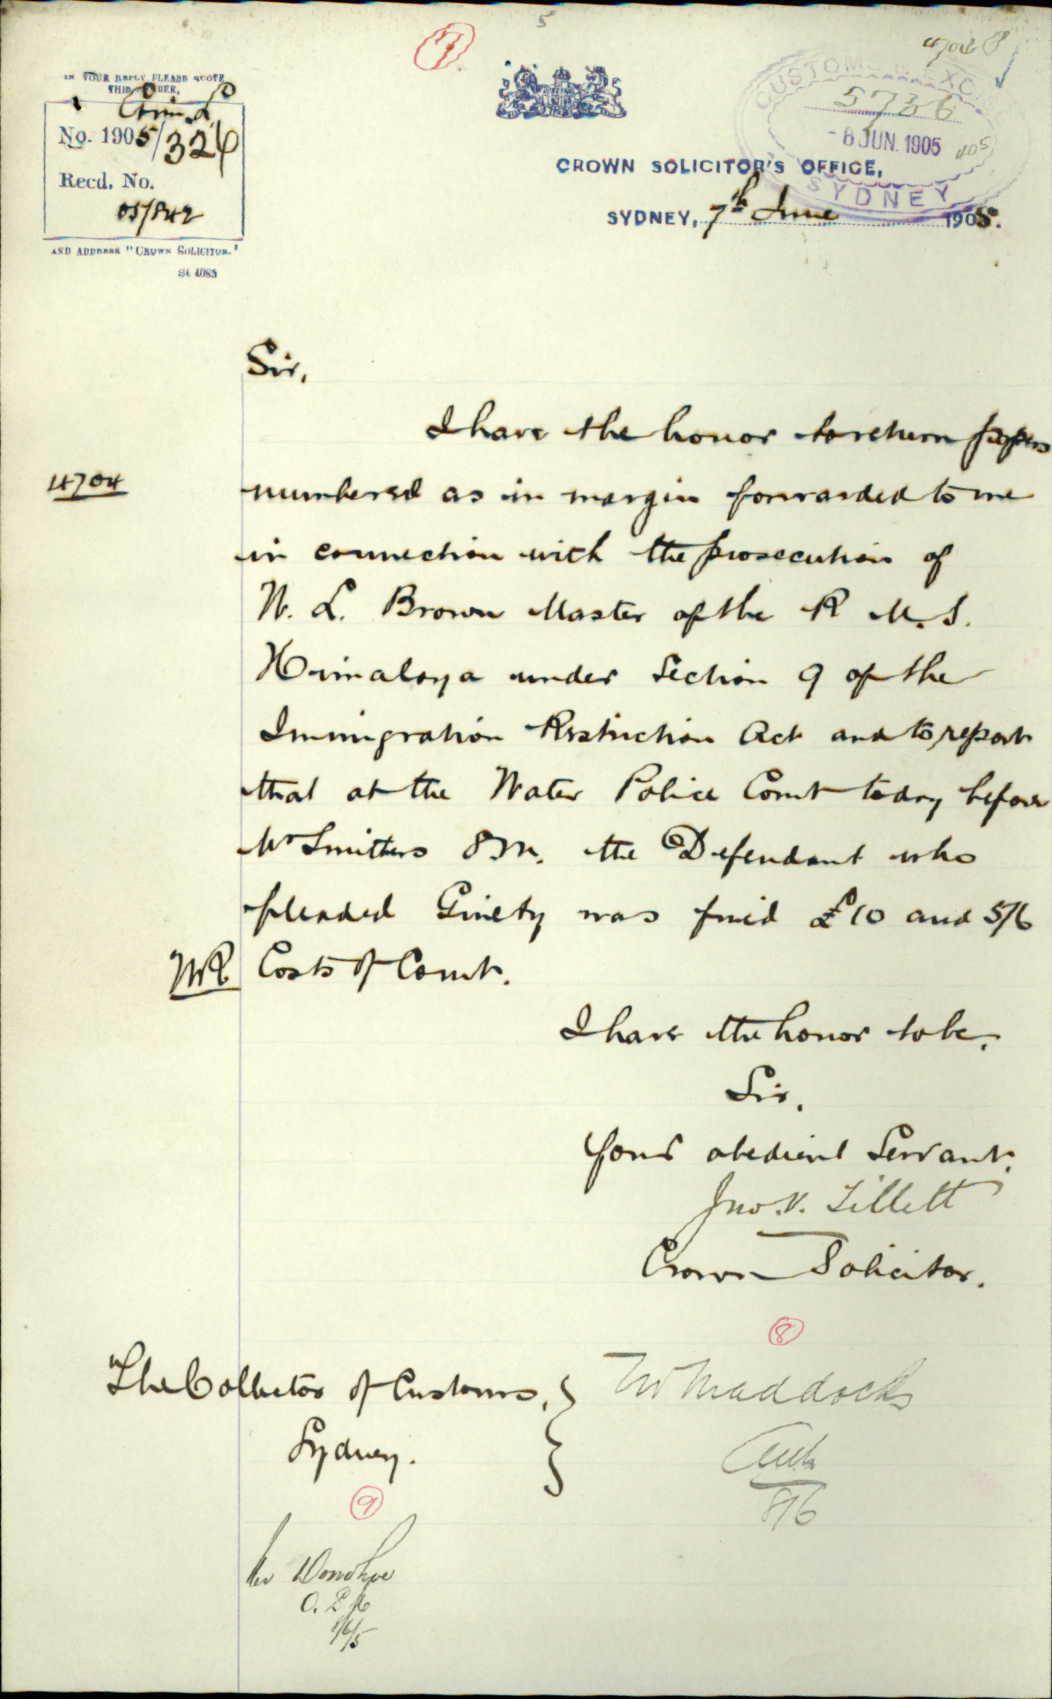 5
7
4704
IN YOUR REPLY PLEASE QUOTE
THIS NUMBER,
Crim. L
No. 1905/326
Recd. No.
05/842
AND ADDRESS "CROWN SOLICITOR."
St 4085
CUSTOMS
5736
-8 JUN. 1905
SYDNEY
CROWN SOLICITOR'S OFFICE,
SYDNEY, 7th June 1905.
Sir,
I have the honor to return papers
4704
numbered as in margin forwarded to me
in connection with the prosecution of
W. L. Brown Master of the R M. S.
Himalaya under Section 9 of the
Immigration Restriction Act and to report
that at the Water Police Court today before
Mr Smithers S.M. the Defendant who
pleaded Guilty was fined £10 and 5/6
Costs of Court.
I have the honor to be,
Sir,
Your obedient Servant.
Jno. V. Tillett
Crown Solicitor.
The Collector of Customs,
Sydney.
8
Mr Maddocks
8/6
9
Mr Donohoe